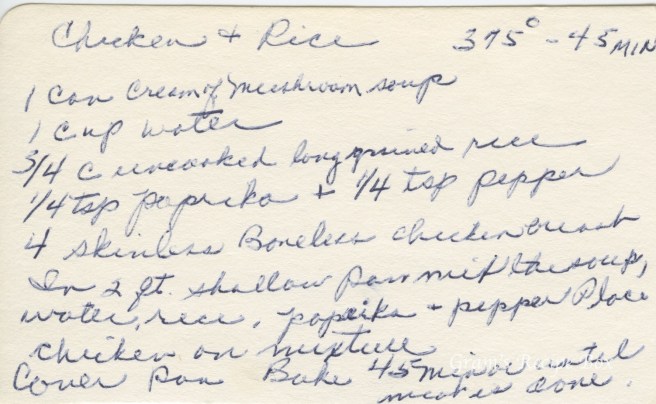 Chicken + Rice 375° - 45 MIN
1 can cream of mushroom soup
1 cup water
3/4 c uncooked long grained rice
1/4 tsp paprika + 1/4 tsp pepper
4 skinless Boneless chicken breast
In 2 qt. shallow pan mix the soup,
water, rice, paprika + pepper Place
chicken on mixture
Cover pan Bake 45 min or until
meat is done.